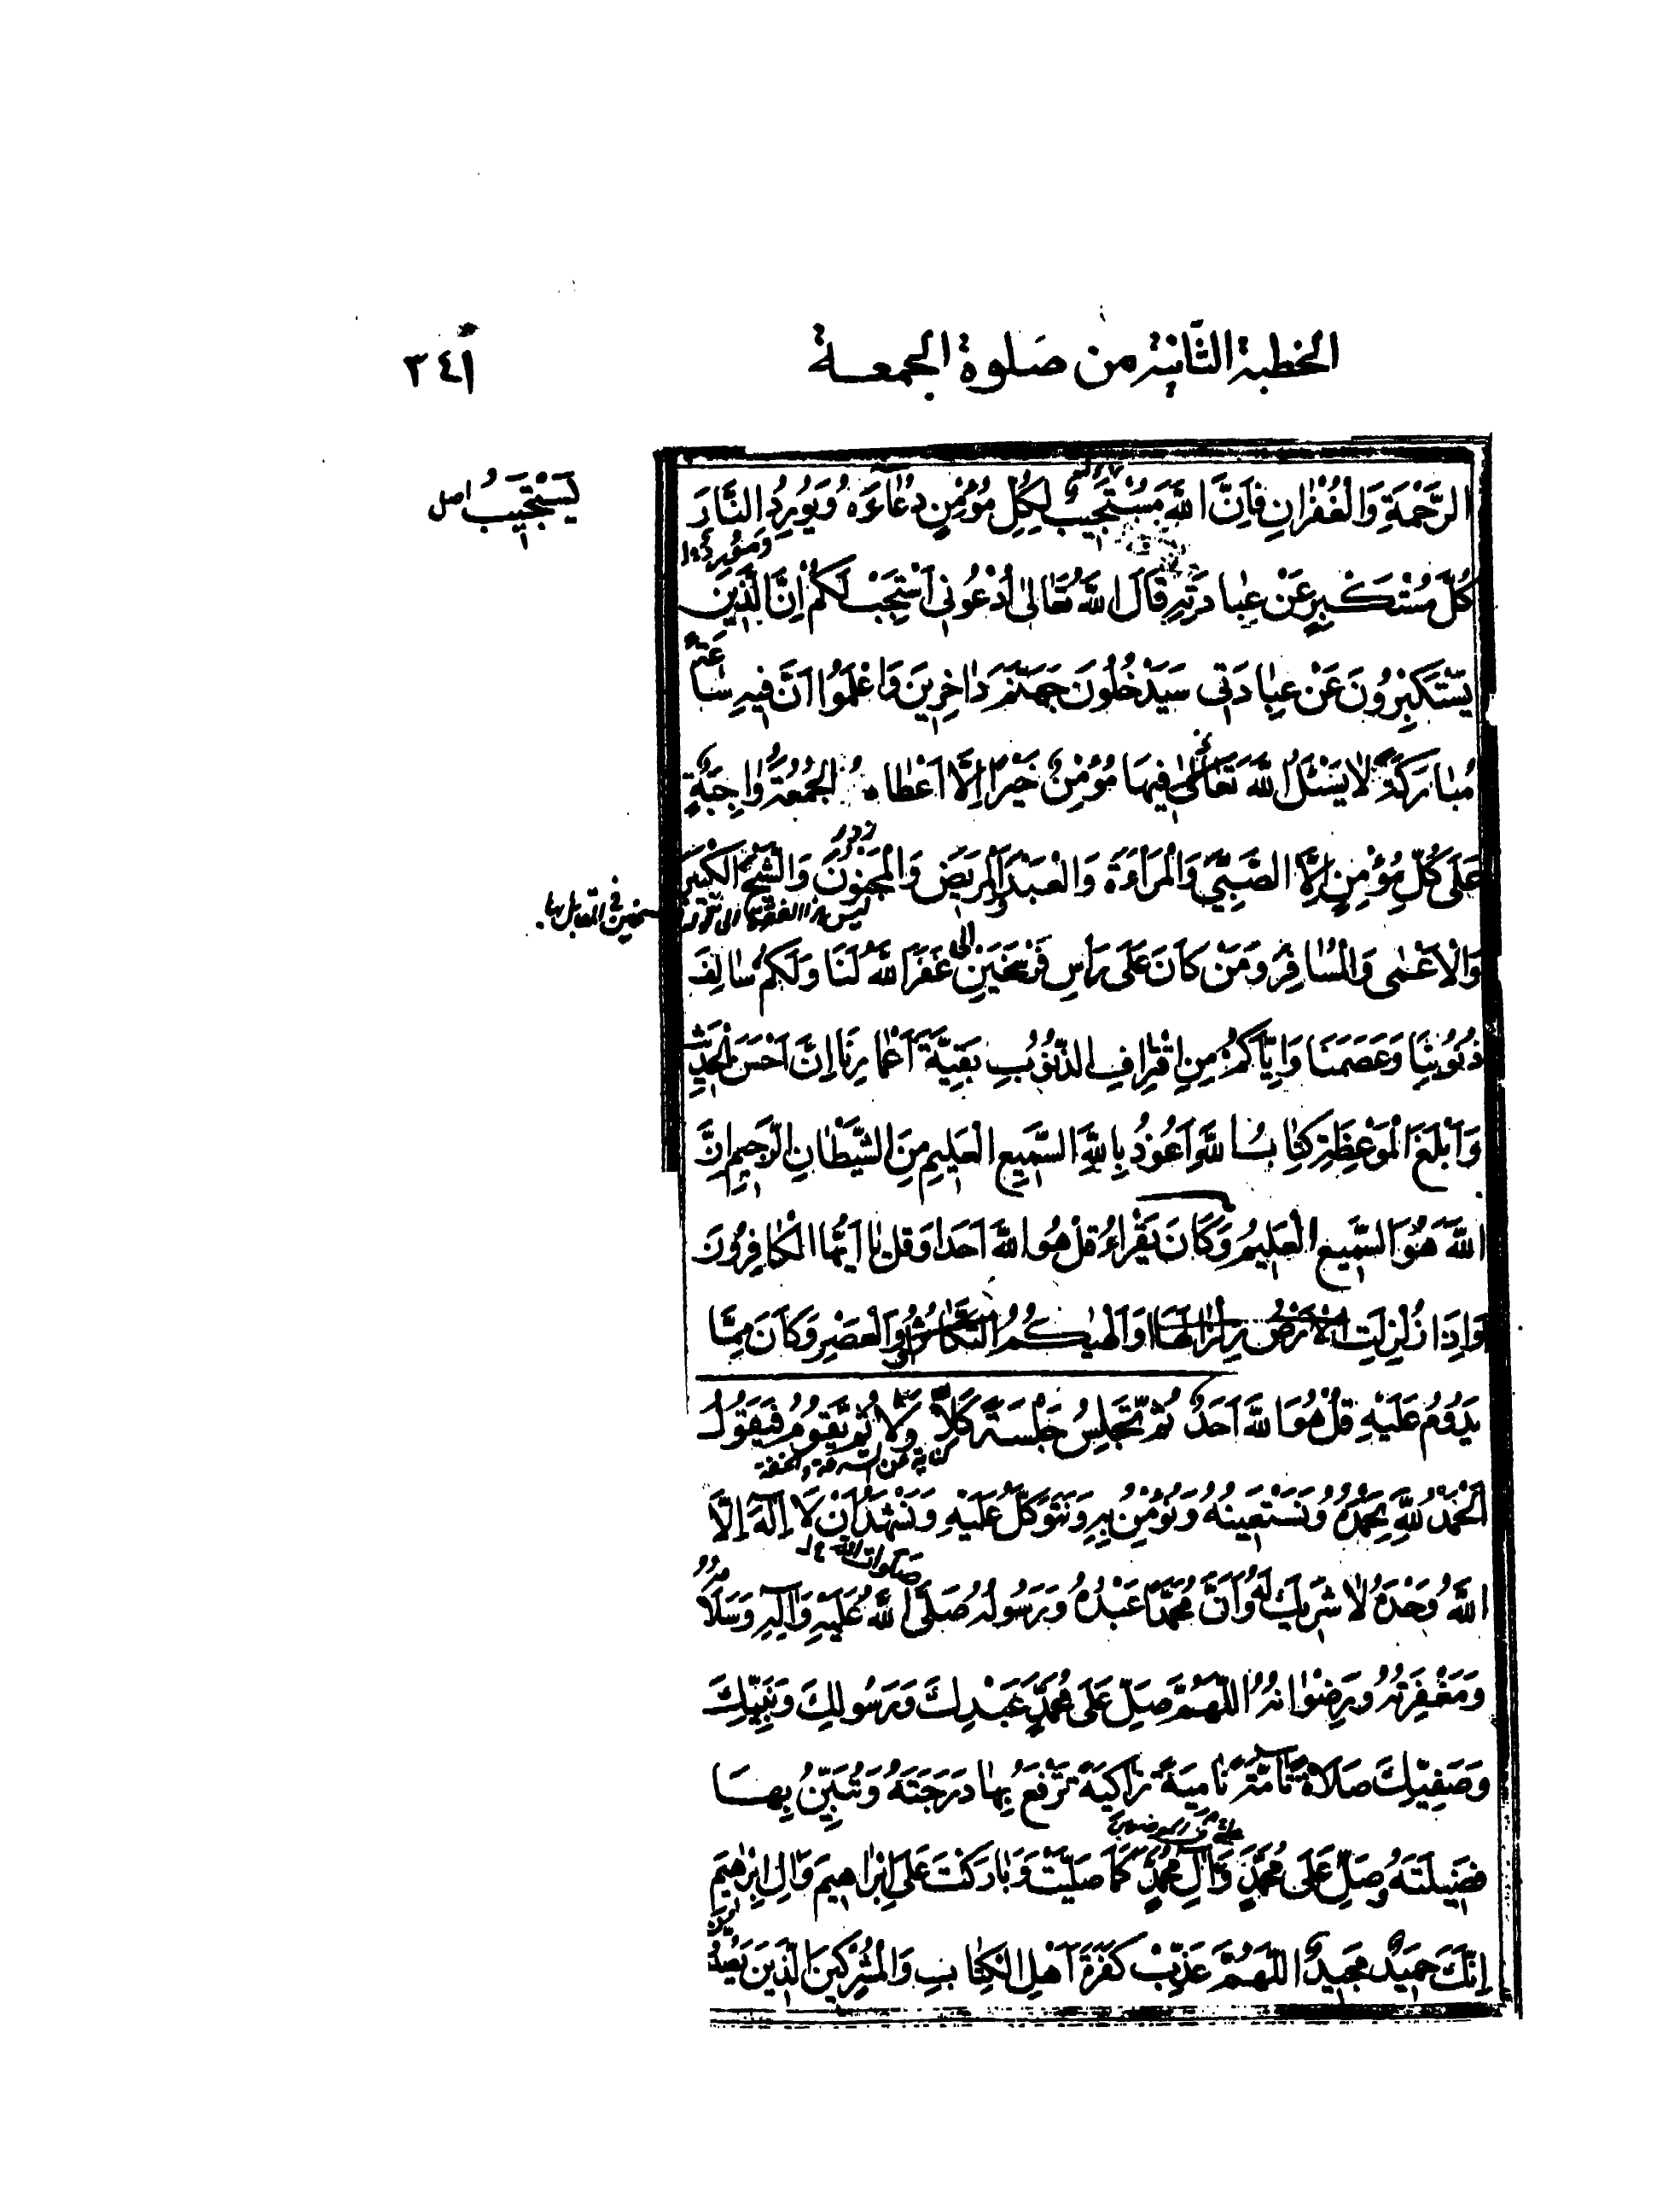 الخطبة الثّانية من صلوة الجمعة
٣٤١
الرَّحْمَةِ وَالْغُفْرٰانِ فَاِنَّ اللّٰهَ مُسْتَجيبٌ لِكُلِّ مُؤْمِنٍ دُعٰاءَهُ وَيُورِدُ النَّارَ
يَسْتَجيبُ اصل
كُلَّ مُسْتَكْبِرٍ عَنْ عِبٰادَتِهِ قٰالَ اللّٰهُ تَعٰالىٰ اُدْعُونى اَسْتَجِبْ لَكُمْ اِنَّ الَّذينَ
يَسْتَكْبِرُونَ عَنْ عِبٰادَتى سَيَدْخُلُونَ جَهَنَّمَ دٰاخِرينَ وَاعْلَمُوا اَنَّ فيهِ سٰاعَةً
مُبٰارَكَةً لٰا يَسْئَلُ اللّٰهَ تَعٰالىٰ فيهٰا مُؤْمِنٌ خَيْرًا اِلَّا اَعْطٰاهُ الْجُمُعَةُ وٰاجِبَةٌ
عَلىٰ كُلِّ مُؤْمِنٍ اِلَّا الصَّبِىَّ وَالْمَرْاَةَ وَالْعَبْدَ وَالْمَريضَ وَالْمَجْنُونَ وَالشَّيْخَ الْكَبيرَ
وَالْاَعْمٰى وَالْمُسٰافِرَ وَمَنْ كٰانَ عَلىٰ رَأْسِ فَرْسَخَيْنِ غَفَرَ اللّٰهُ لَنٰا وَلَكُمْ سٰالِفَ
ذُنُوبِنٰا وَعَصَمَنٰا وَاِيّٰاكُمْ مِنِ اقْتِرٰافِ الذُّنُوبِ بَقِيَّةَ اَعْمٰارِنٰا اِنَّ اَحْسَنَ الْحَديثِ
وَاَبْلَغَ الْمَوْعِظَةِ كِتٰابُ اللّٰهِ اَعُوذُ بِاللّٰهِ السَّميعِ الْعَليمِ مِنَ الشَّيْطٰانِ الرَّجيمِ اِنَّ
اللّٰهَ هُوَ السَّميعُ الْعَليمُ وَكٰانَ يَقْرَاُ قُلْ هُوَ اللّٰهُ اَحَدٌ اَوْ قُلْ يٰا اَيُّهَا الْكٰافِرُونَ
اَوْ اِذٰا زُلْزِلَتِ الْاَرْضُ زِلْزٰالَهٰا اَوْ اَلْهٰيكُمُ التَّكٰاثُرُ اَوْ وَالْعَصْرِ وَكٰانَ مِمّٰا
يَدُومُ عَلَيْهِ قُلْ هُوَ اللّٰهُ اَحَدٌ ثُمَّ تَجْلِسُ جَلْسَةً كَلاّٰ وَلاٰ ثُمَّ يَقُومُ فَيَقُولُ
اَلْحَمْدُ لِلّٰهِ نَحْمَدُهُ وَنَسْتَعينُهُ وَنُؤْمِنُ بِهِ وَنَتَوَكَّلُ عَلَيْهِ وَنَشْهَدُ اَنْ لٰا اِلٰهَ اِلَّا
صلوات الله
اللّٰهُ وَحْدَهُ لٰا شَريكَ لَهُ وَاَنَّ مُحَمَّدًا عَبْدُهُ وَرَسُولُهُ صَلَّى اللّٰهُ عَلَيْهِ وَاٰلِهِ وَسَلٰامُهُ
وَمَغْفِرَتُهُ وَرِضْوٰانُهُ اَللّٰهُمَّ صَلِّ عَلىٰ مُحَمَّدٍ عَبْدِكَ وَرَسُولِكَ وَنَبِيِّكَ
وَصَفِيِّكَ صَلٰاةً تٰامَّةً نٰامِيَةً زٰاكِيَةً تَرْفَعُ بِهٰا دَرَجَتَهُ وَتُبَيِّنُ بِهٰا
فَضيلَتَهُ وَصَلِّ عَلىٰ مُحَمَّدٍ وَاٰلِ مُحَمَّدٍ كَمٰا صَلَّيْتَ وَبٰارَكْتَ عَلىٰ اِبْرٰاهيمَ وَاٰلِ اِبْرٰاهيمَ
اِنَّكَ حَميدٌ مَجيدٌ اَللّٰهُمَّ عَذِّبْ كَفَرَةَ اَهْلِ الْكِتٰابِ وَالْمُشْرِكينَ الَّذينَ يَصُدُّونَ